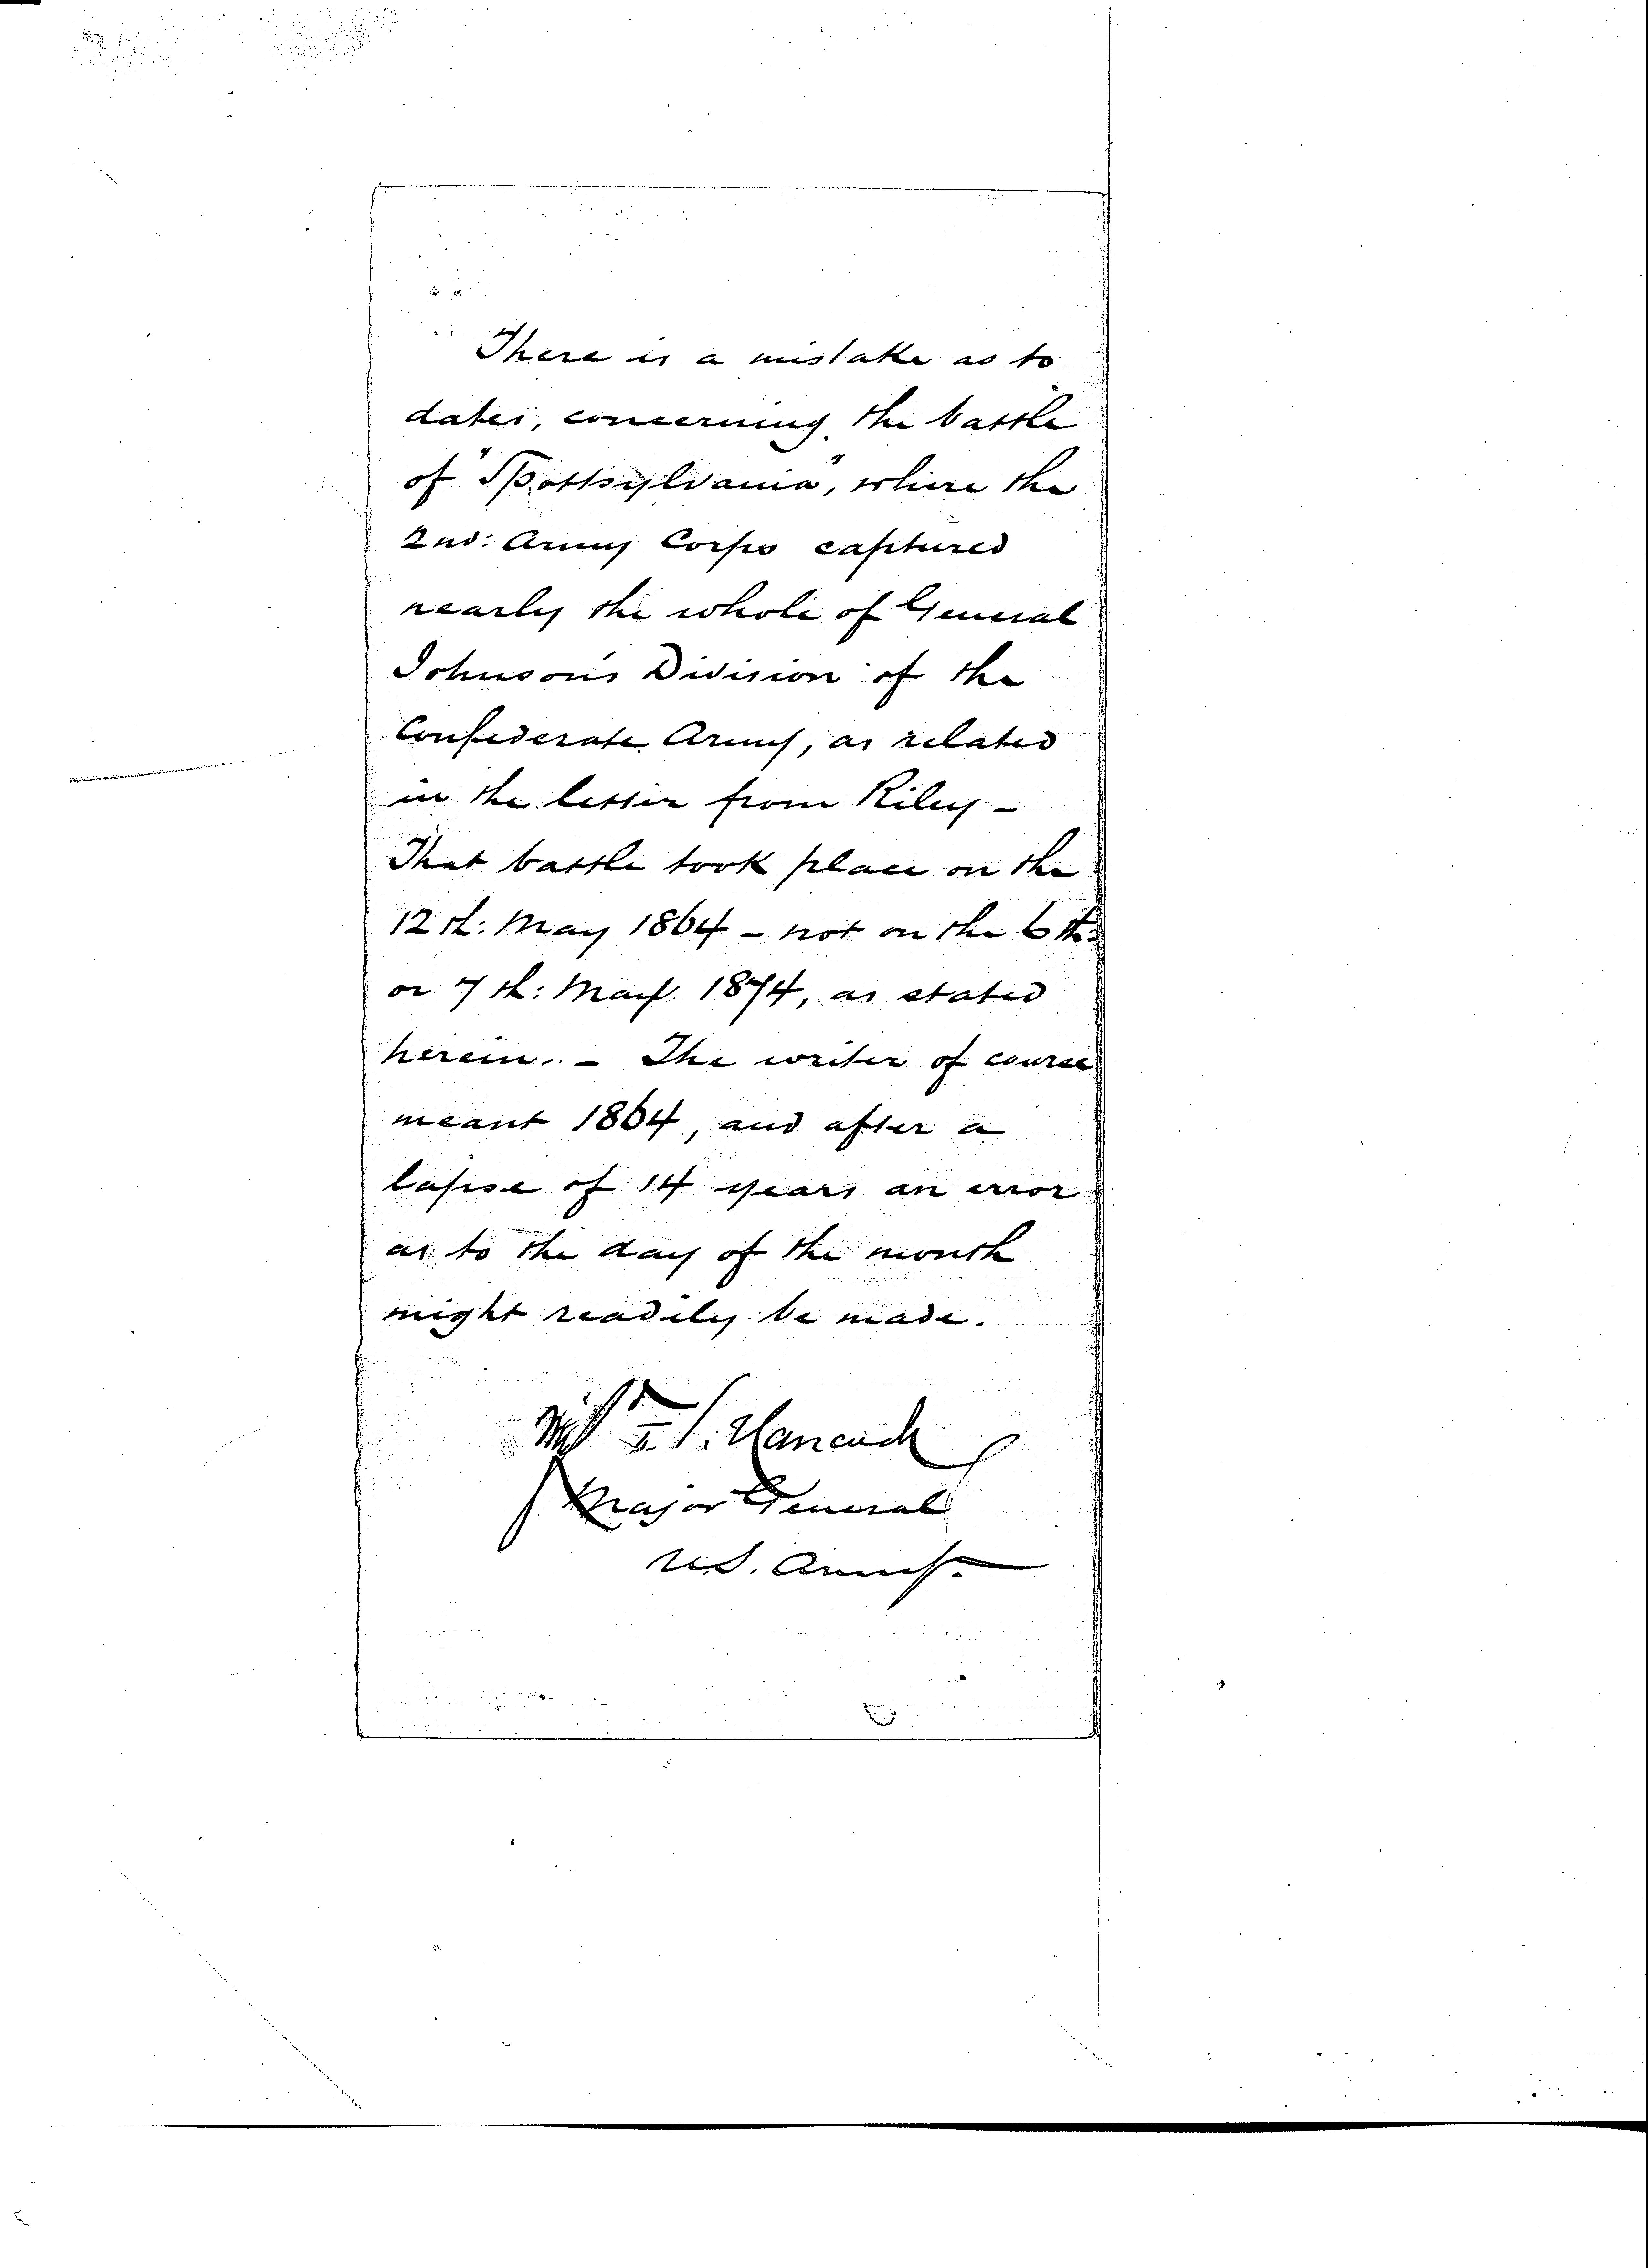 There is a mistake as to
dates, concerning the battle
of "Spottsylvania", where the
2nd: Army Corps captured
nearly the whole of General
Johnson's Division of the
Confederate Army, as related
in the letter from Riley –
That battle took place on the
12th: May 1864 – not on the 6th:
or 7th: May 1874, as stated
herein. – The writer of course
meant 1864, and after a
lapse of 14 years an error
as to the day of the month
might readily be made.
Hancock
Major General
U.S. Army.